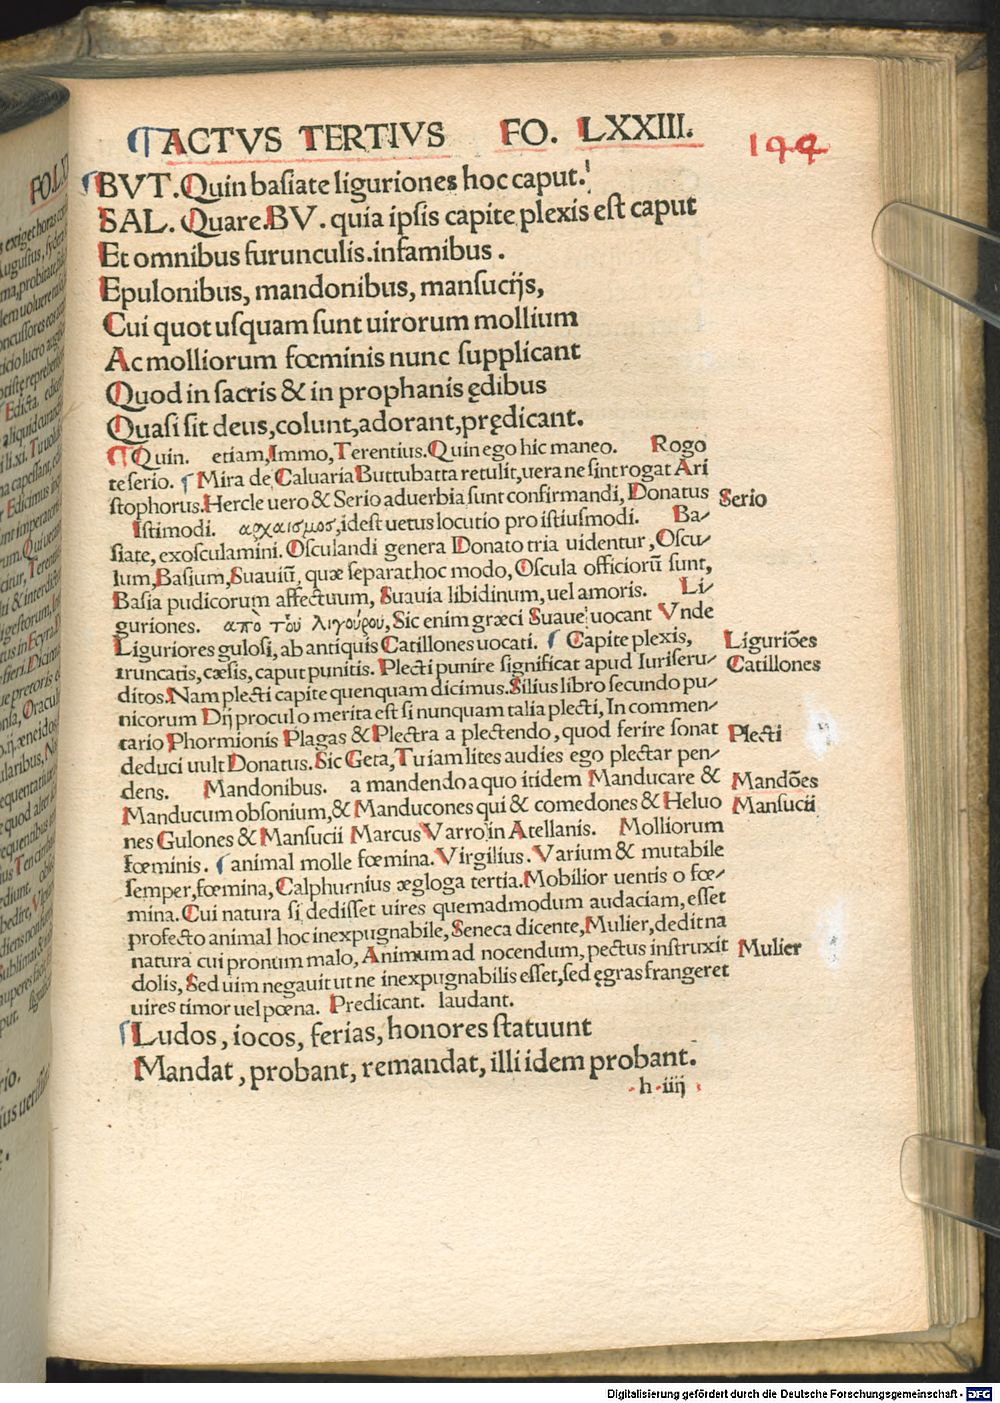 ACTVS TERTIVS FO. LXXIII. 144
BVT. Quin basiate liguriones hoc caput.
SAL. Quare. BV. quia ipsis capite plexis est caput
Et omnibus furunculis. infamibus.
Epulonibus, mandonibus, mansucijs,
Cui quot usquam sunt uirorum mollium
Ac molliorum fœminis nunc supplicant
Quod in sacris & in prophanis ędibus
Quasi sit deus, colunt, adorant, prędicant.
Quin. etiam, Immo, Terentius. Quin ego hic maneo. Rogo
te serio. Mira de Caluaria Buttubatta retulit, uera ne sint rogat Ari
stophorus. Hercle uero & Serio aduerbia sunt confirmandi, Donatus
Serio
Istimodi. αρχαισμοσ, idest uetus locutio pro istiusmodi. Ba-
siate, exosculamini. Osculandi genera Donato tria uidentur, Oscu-
lum, Basium, Suauiū, quæ separat hoc modo, Oscula officiorū sunt,
Basia pudicorum affectuum, Suauia libidinum, uel amoris. Li-
guriones. απὸ τοῦ λιγούρου, Sic enim græci Suaue uocant Vnde
Liguriores gulosi, ab antiquis Catillones uocati. Capite plexis,
Liguriões
truncatis, cæsis, caput punitis. Plecti punire significat apud Iurisru-
Catillones
ditos. Nam plecti capite quenquam dicimus. Silius libro secundo pu-
nicorum Dij procul o merita est si nunquam talia plecti, In commen-
tario Phormionis Plagas & Plectra a plectendo, quod ferire sonat
Plecti
deduci uult Donatus. Sic Geta, Tu iam lites audies ego plectar pen-
dens. Mandonibus. a mandendo a quo itidem Manducare &
Mandões
Manducum obsonium, & Manducones qui & comedones & Heluo
Mansucii
nes Gulones & Mansucii Marcus Varro in Atellanis. Molliorum
fœminis. animal molle fœmina. Virgilius. Varium & mutabile
semper, fœmina, Calphurnius ægloga tertia. Mobilior uentis o fœ-
mina. Cui natura si dedisset uires quemadmodum audaciam, esset
profecto animal hoc inexpugnabile, Seneca dicente, Mulier, dedit na
natura cui pronum malo, Animum ad nocendum, pectus instruxit
Mulier
dolis, Sed uim negauit ut ne inexpugnabilis esset, sed ęgras frangeret
uires timor uel pœna. Predicant. laudant.
Ludos, iocos, ferias, honores statuunt
Mandat, probant, remandat, illi idem probant.
h iiij
Digitalisierung gefördert durch die Deutsche Forschungsgemeinschaft - DFG